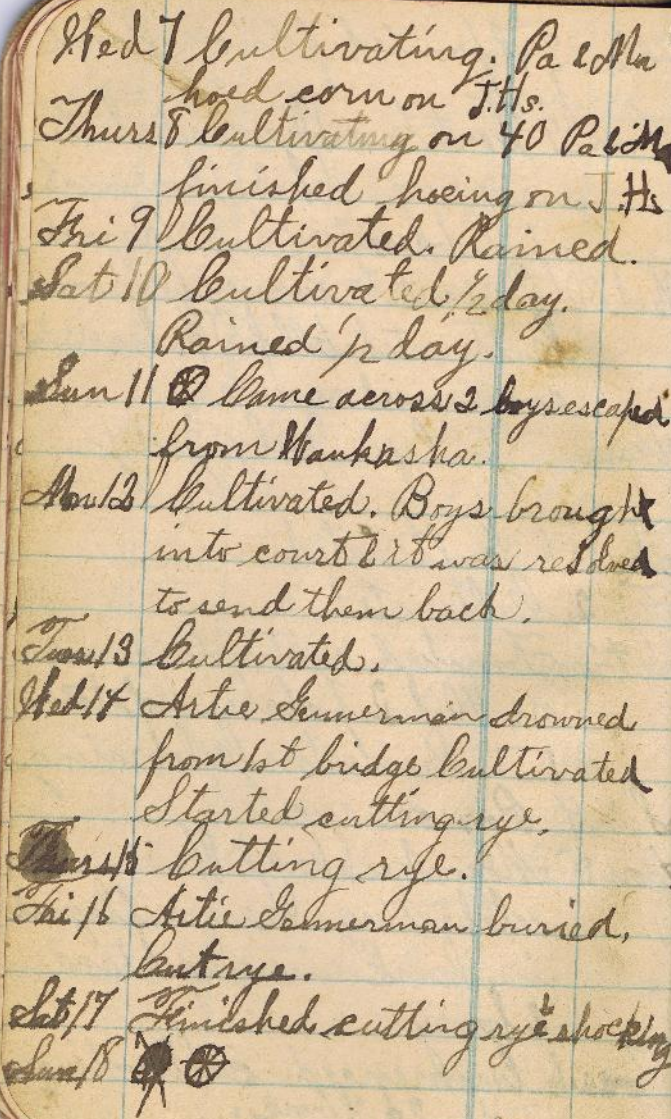 Wed 7 Cultivating. Pa & Ma
hoed corn on J.Hs.
Thurs 8 Cultivating on 40 Pa & M
finished hoeing on J.Hs
Fri 9 Cultivated. Rained.
Sat 10 Cultivated 1/2 day.
Rained 1/2 day.
Sun 11 Came across 2 boys escaped
from Waukasha.
Mon 12 Cultivated. Boys brought
into court & it was resolved
to send them back.
Tues 13 Cultivated.
Wed 14 Artie Gunnerman drowned
from 1st bridge Cultivated
Started cutting rye.
Thurs 15 Cutting rye.
Fri 16 Artie Gunnerman buried.
Cut rye.
Sat 17 Finished cutting rye & shocking
Sun 18